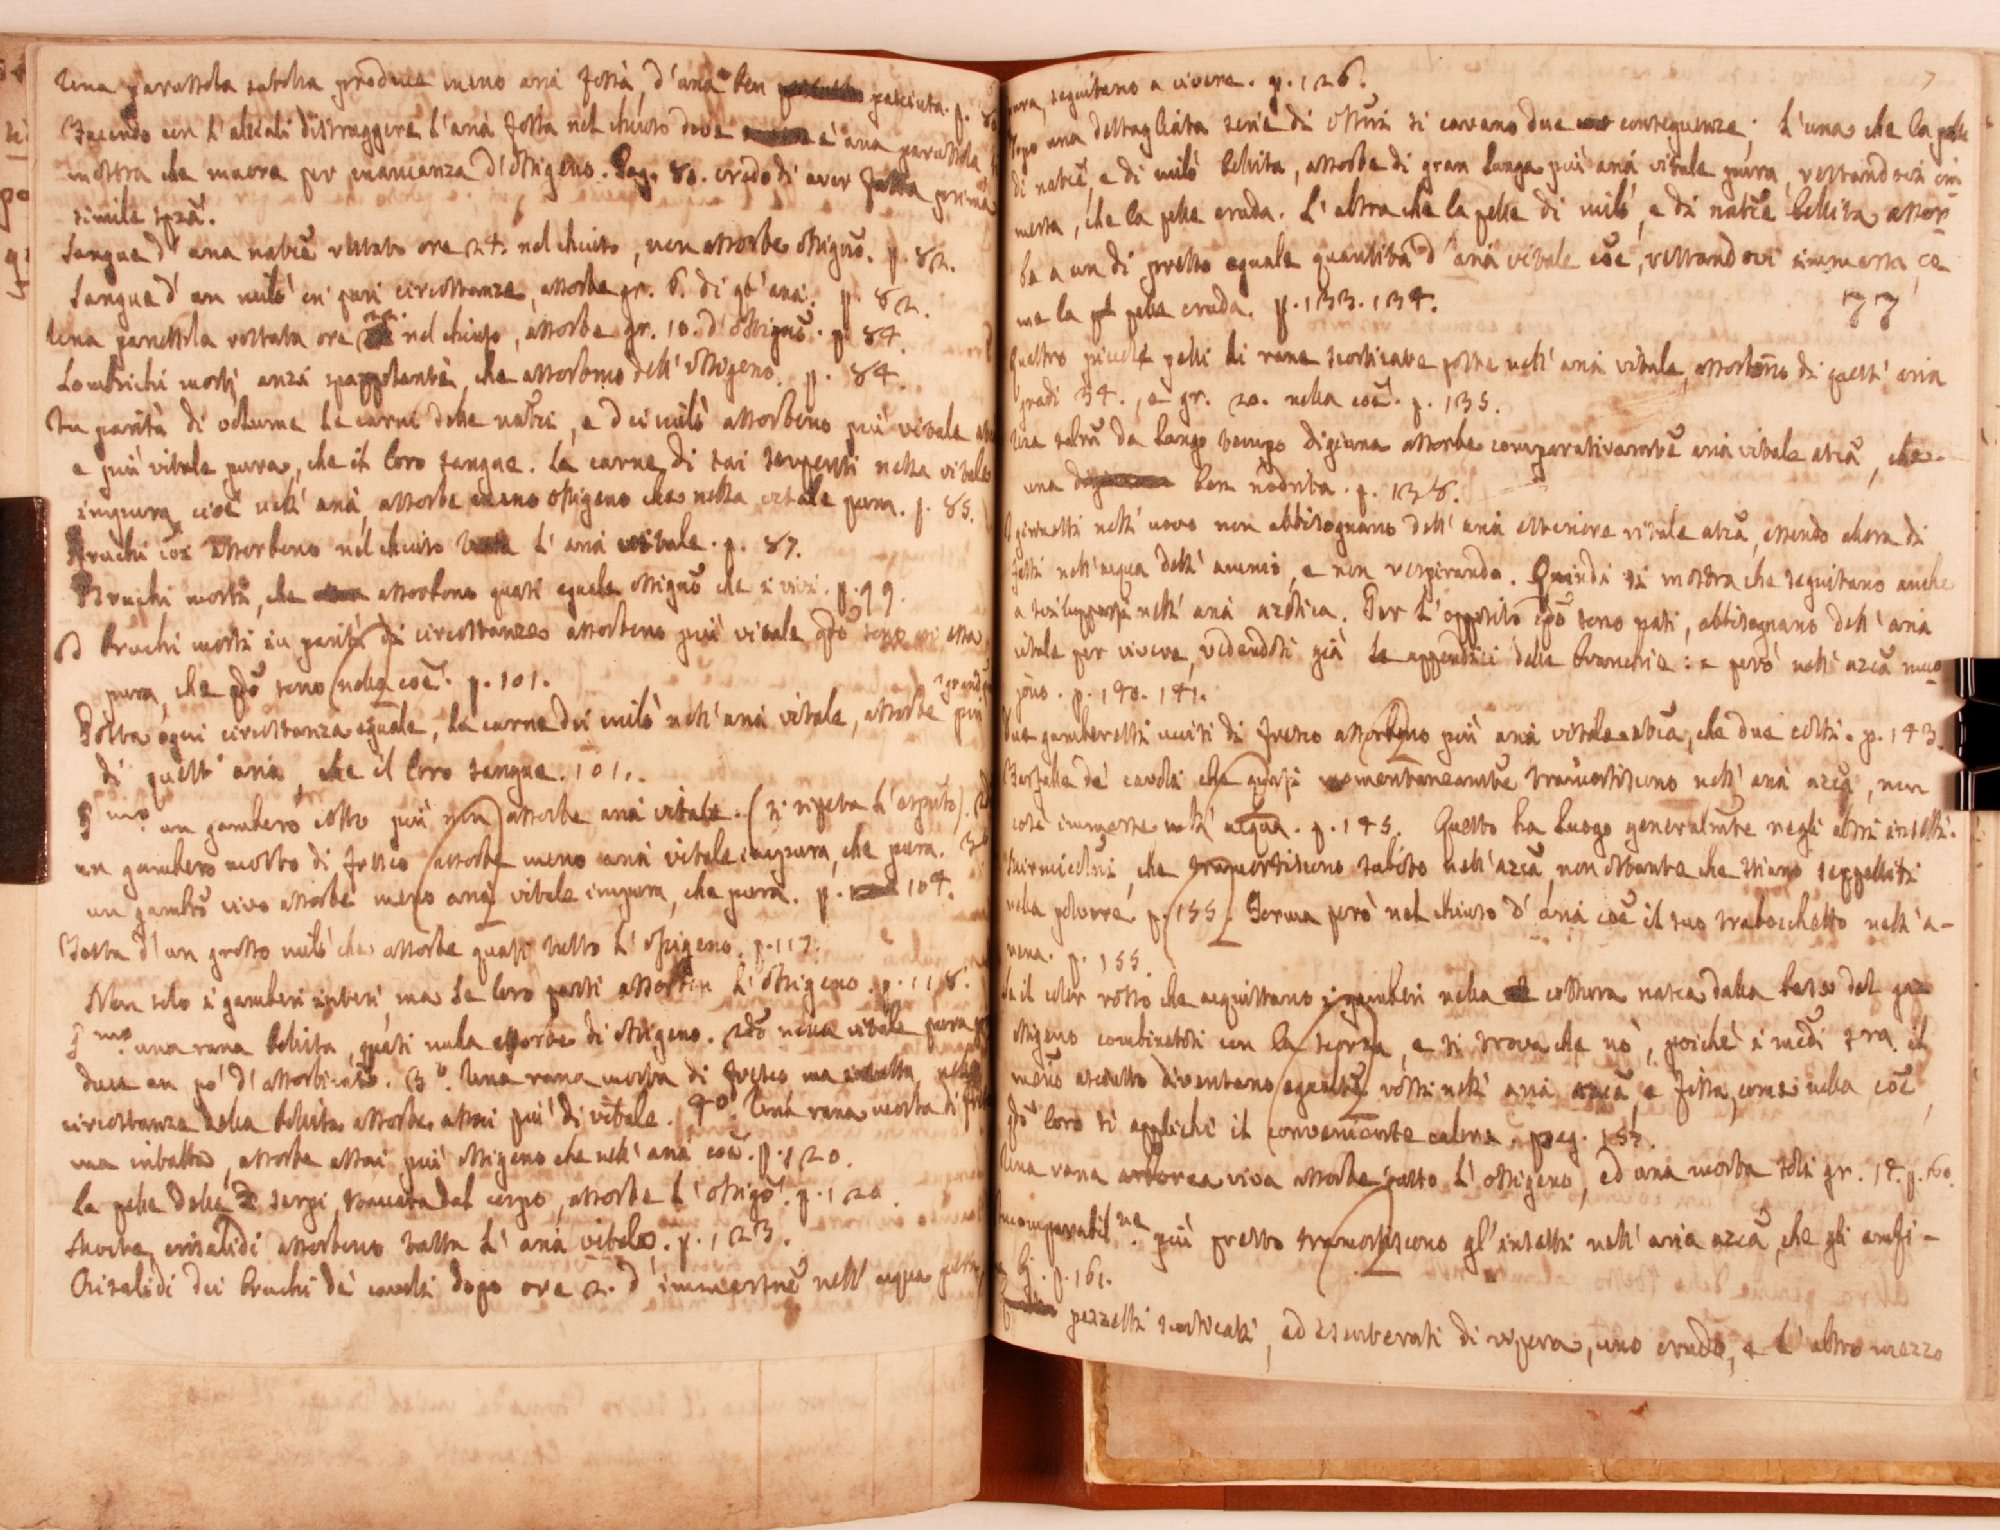 Una parussola satolla produce meno aria fissa, d'una ben pasciuta. p. 80
Facendo con l'alcali distruggere l'aria fissa nel chiuso dove è una parussola
mostra che muore per mancanza d'ossigeno. Pag. 80. credo di aver fatta prima
simile spza.
Sangue d'una natce restato ore 24. nel chiuso, non assorbe ossigno. p. 82.
Sangue d'un milò in pari circostanze, assorbe gr. 6. di qt'aria. p. 82.
Una parussola restata ore 22. nel chiuso, assorbe gr. 10. d'ossigno. p. 84.
Lombrichi morti, anzi spappolanti, che assorbono dell'ossigeno. p. 84.
In parità di volume le carni delle natrici, e dei milò assorbono più vitale
e più vitale pura, che il loro sangue. La carne di tai serpenti nella vitale
impura, cioè nell'aria, assorbe meno ossigeno che nella vitale pura. p. 85.
Bruchi coe assorbono nel chiuso l'aria vitale. p. 87.
Bruchi morti, che assorbono quasi eguale ossigno che i vivi. p. 99.
Bruchi morti in parità di circostanze assorbono più vitale qdo sono in essa
pura, che qdo sono nella coe. p. 101.
Posta ogni circostanza eguale, la carne dei milò nell'aria vitale, assorbe più
di quest'aria, che il loro sangue. 101.
P mo un gambero cotto più non assorbe aria vitale. (si ripeta l'esprto).
un gambero morto di fresco assorbe meno aria vitale impura, che pura. 3°
un gambro vivo assorbe meno aria vitale impura, che pura. p. 104.
Testa d'un grosso milò che assorbe quasi tutto l'ossigeno. p. 117.
Non solo i gamberi interi, ma le loro parti assorbon l'ossigeno. p. 118.
P mo una rana bollita, quasi nulla assorbe di ossigeno. 2do nella vitale pura
duce un pò d'assorbimto. 3°. Una rana morta di fresco ma intatta, nelle
circostanze della bollita assorbe assai più di vitale. 4°. Una rana morta di
ma intatta, assorbe assai più ossigeno che nell'aria coe. p. 120.
La pelle delle serpi staccata dal corpo, assorbe l'ossigo. p. 120.
Morte, crisalidi assorbono tutta l'aria vitale. p. 123.
Crisalidi dei bruchi de' cavoli dopo ore 2. d'immersne nell'acqua

7
pura, seguitano a vivere. p. 126.
Dopo una dettagliata serie di si cavano due conseguenze; l'una che la pelle
di natce, e di milò bollita, assorbe di gran lunga più aria vitale pura, restandovi im
mersa, che la pelle cruda. L'altra che la pelle di milò, e di natce bollita assor
be a un di presso eguale quantità d'aria vitale coe, restandovi immersa, co
me la pelle cruda. p. 133. 134.
77
Quattro piccole pelli di rane scorticate poste nell'aria vitale, assorbono di quest'aria
gradi 34., e gr. 20. nella coe. p. 135.
Una da lungo tempo digiuna assorbe comparativamte aria vitale atca, che
una ben nodrita. p. 138.
I girnelli nell'uovo non abbisognano dell'aria esteriore vitale atca, essendo allora di
fessi nell'acqua dell'amnio, e non respirando. Quindi si mostra che seguitano anche
a svilupparsi nell'aria azotica. Per l'opposito qdo sono nati, abbisognano dell'aria
vitale per vivere, vedendosi già le appendici delle branchie: e però nell'azca muo
jono. p. 140. 141.
Due gamberetti usciti di fresco assorbono più aria vitale atca, che due cotti. p. 143.
Farfalle de' cavoli che quasi momentaneamte tramortiscono nell'aria azca, non
così immerse nell'acqua. p. 145. Questo ha luogo generalmte negli altri insetti.
Formicaleoni, che tramortiscono subito nell'azca, non ostante che stiano seppelliti
nella polvere p. 155. Forma però nel chiuso d'aria coe il suo trabocchetto nell'a-
rena. p. 155.
Se il color rosso che acquistano i gamberi nella cottura nasca dalla base del gaz
ossigeno combinatosi con la scorza, e si trova che nò, poichè i medi tra il
meno atcetto diventano egualte rossi nell'aria azca, e fissa, come nella coe,
qdo loro si applichi il conveniente calore. pag. 155.
Una rana arborea viva assorbe tutto l'ossigeno, ed una morta soli gr. 14. p. 160.
Incomparabil ne. più presto tramortiscono gl'insetti nell'aria azca, che gli amfi-
bj. p. 161.
pezzetti scorticati, ed esvicerati di vipera, uno crudo, e l'altro mezzo